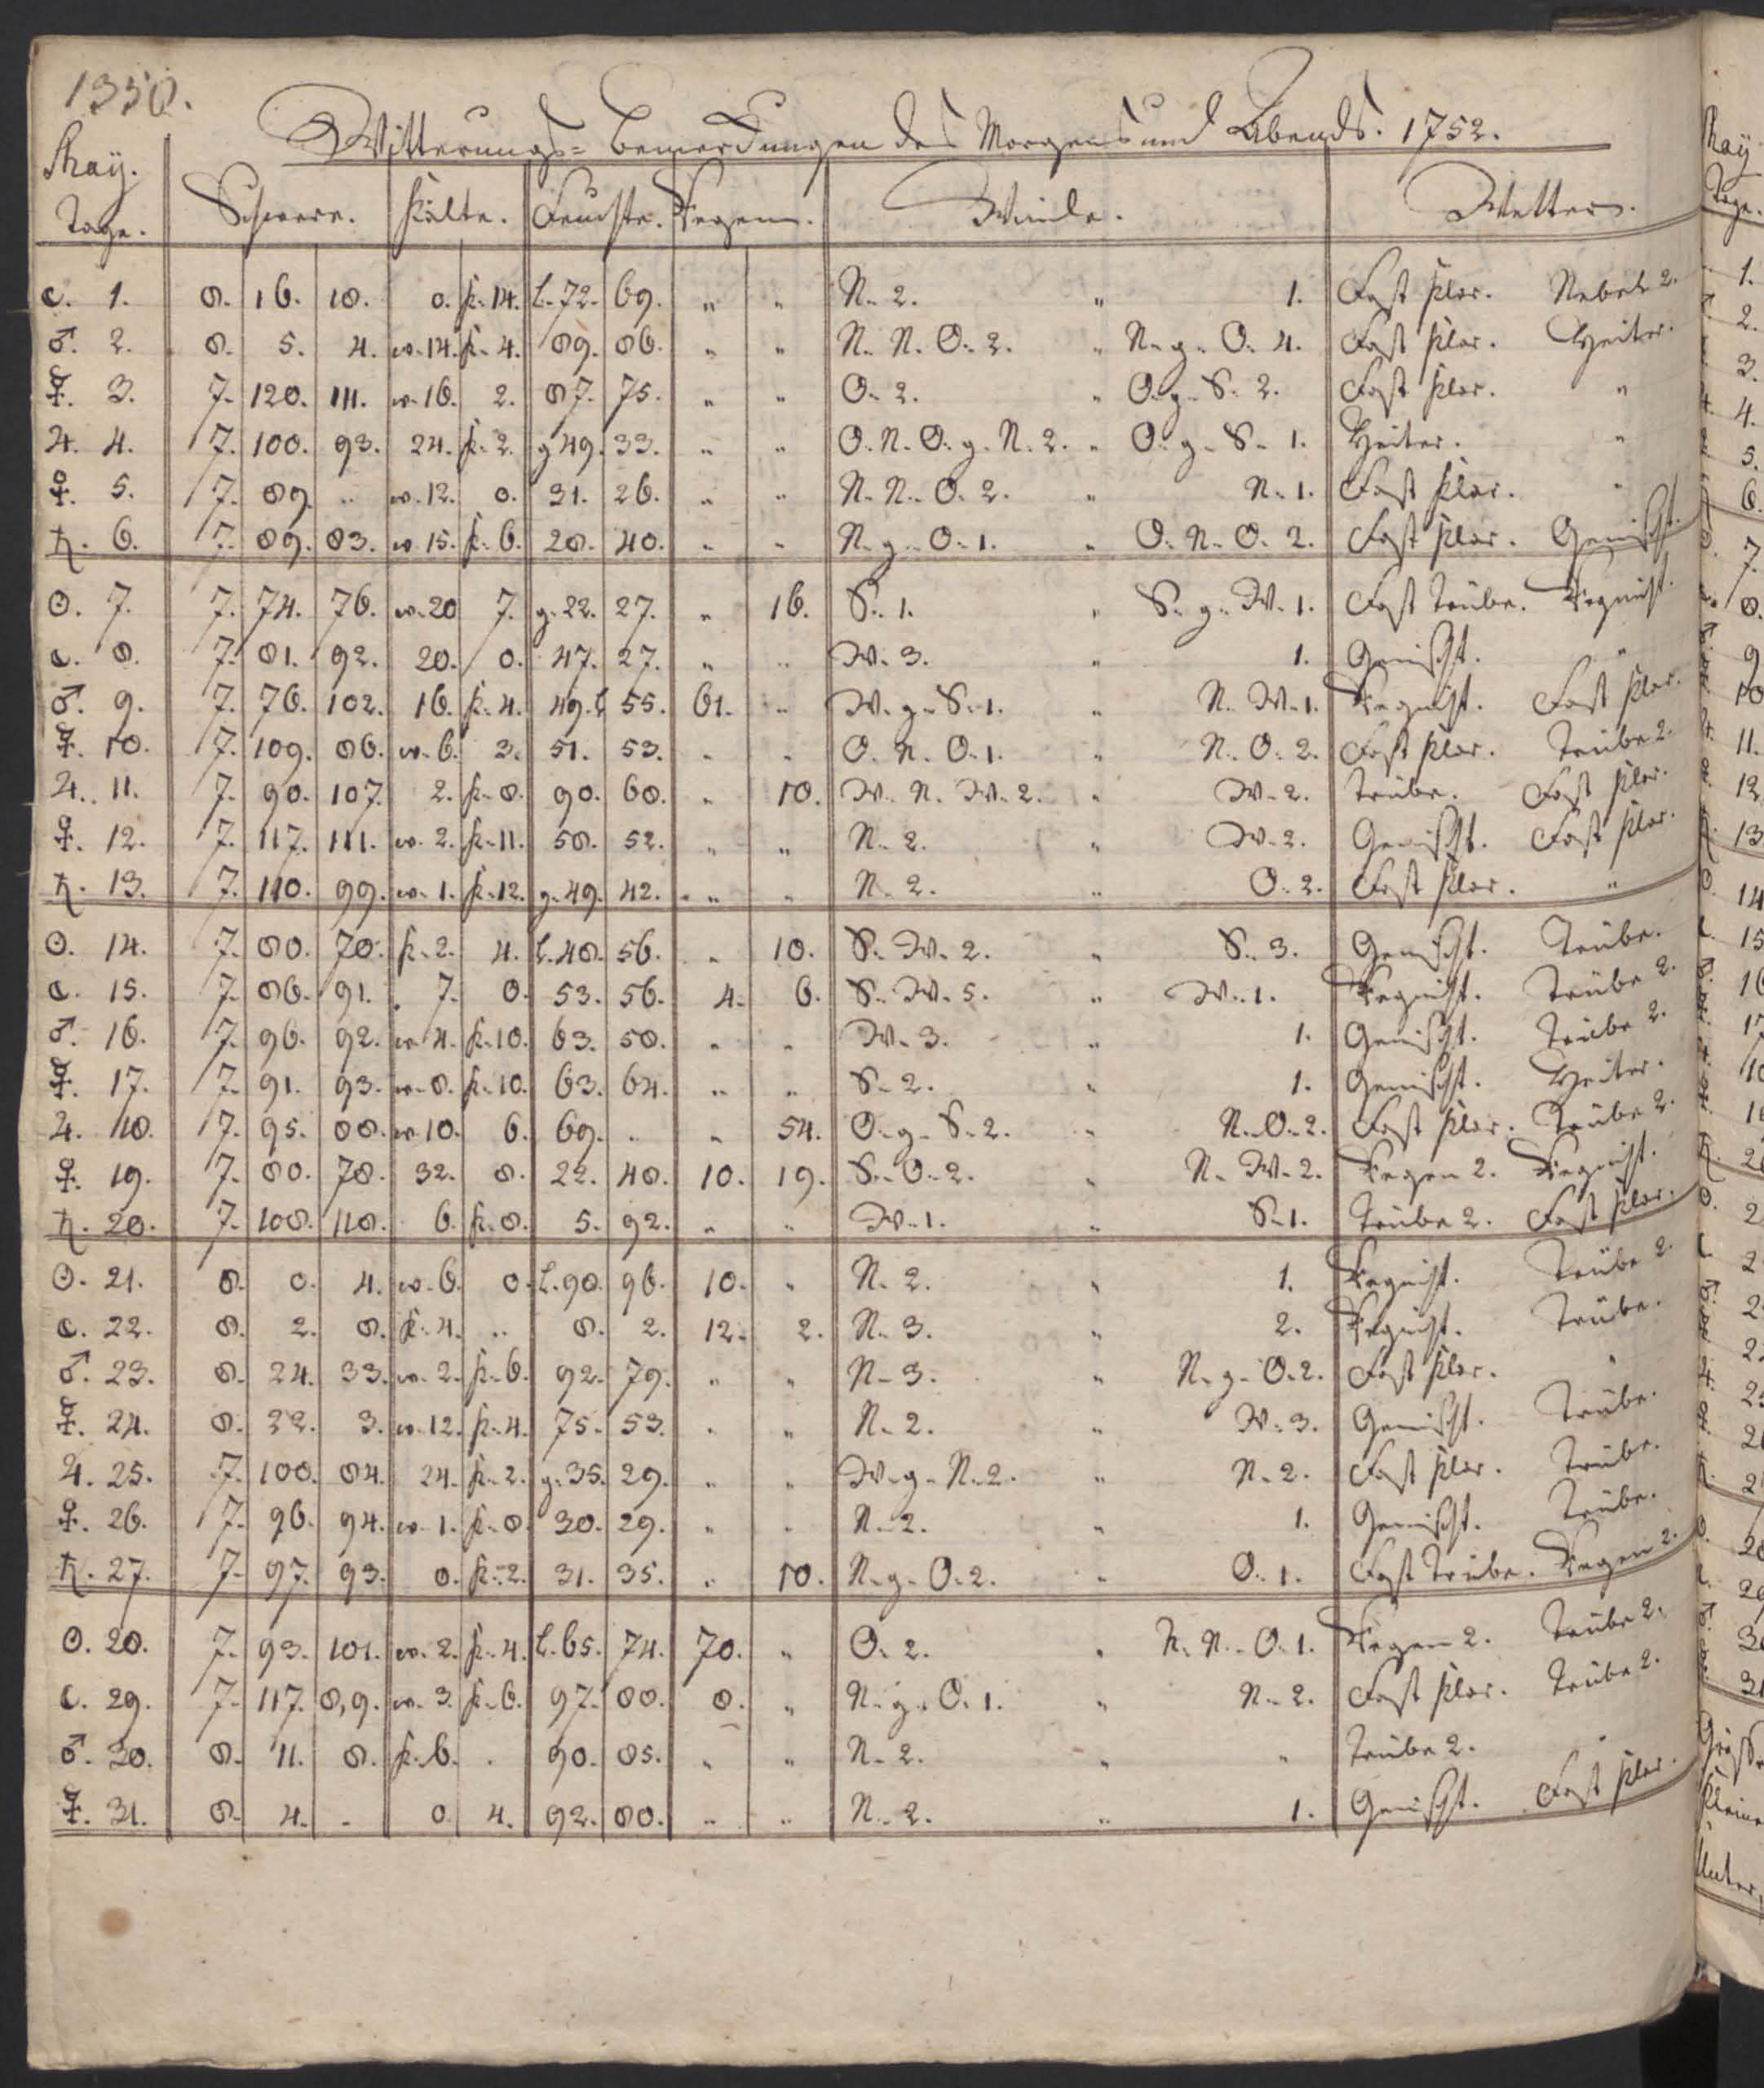 1350.
Witterungs= Bemerkungen des Morgens und Abends. 1752.
May. Tage. Schwere. Kälte. Feuchte. Regen. Winde. Wetter.
☾. 1. 8. 16. 18. 0. k. 14. l. 72. 69. " " N. 2. " 1. Fast klar. Nebel 2.
♂. 2. 8. 5. 4. w. 14. k. 4. 89. 86. " " N. N. O. 2. " N. g. O. 4. Fast klar. Heiter.
☿. 3. 7. 120. 111. w. 16. 2. 87. 75. " " O. 2. " O. g. S. 2. Fast klar. "
♃. 4. 7. 100. 93. 24. k. 2. g 49. 33. " " O. N. O. g. N. 2. " O. g. S. 1. Heiter. "
♀. 5. 7. 89. " w. 12. 0. 31. 26. " " N. N. O. 2. " N. 1. Fast klar. "
♄. 6. 7. 89. 83. w. 15. k. 6. 28. 40. " " N. g. O. 1. " O. N. O. 2. Fast klar. Gemischt.
☉. 7. 7. 74. 76. w. 20 7. g. 22. 27. " 16. S. 1. " S. g. W. 1. Fast trübe. Regnicht.
☾. 8. 7. 81. 92. 20. 0. 47. 27. " " W. 3. " 1. Gemischt. "
♂. 9. 7. 76. 102. 16. k. 4. 49. l 55. 61. " W. g. S. 1. " N. W. 1. Regnicht. Fast klar.
☿. 10. 7. 109. 86. w. 6. 3. 51. 53. " " O. N. O. 1. " N. O. 2. Fast klar. Trübe 2.
♃. 11. 7. 90. 107. 2. k. 8. 90. 60. " 10. W. N. W. 2. " W. 2. Trübe. Fast klar.
♀. 12. 7. 117. 111. w. 2. k. 11. 58. 52. " " N. 2. " W. 2. Gemischt. Fast klar.
♄. 13. 7. 110. 99. w. 1. k. 12. g. 49. 42. " " N. 2. " O. 2. Fast klar. "
☉. 14. 7. 80. 70. k. 2. 4. l. 48. 56. " 10. S. W. 2. " S. 3. Gemischt. Trübe.
☾. 15. 7. 86. 91. " 7. 0. 53. 56. 4. 6. S. W. 5. " W. 1. Regnicht. Trübe 2.
♂. 16. 7. 96. 92. w. 4. k. 10. 63. 50. " " W. 3. " 1. Gemischt. Trübe 2.
☿. 17. 7. 91. 93. w. 8. k. 10. 63. 64. " " S. 2. " 1. Gemischt. Heiter.
♃. 18. 7. 95. 88. w. 10. 6. 69. " " 54. O. g. S. 2. " N. O. 2. Fast klar. Trübe 2.
♀. 19. 7. 80. 78. 32. 8. 22. 48. 10. 19. S. O. 2. " N. W. 2. Regen 2. Regnicht.
♄. 20. 7. 108. 118. 6. k. 8. 5. 92. " " W. 1. " S. 1. Trübe 2. Fast klar.
☉. 21. 8. 0. 4. w. 6. 0. l. 90. 96. 10. " N. 2. " 1. Regnicht. Trübe 2.
☾. 22. 8. 2. 8. k. 4. " 8. 2. 12. 2. N. 3. " 2. Regnicht. Trübe.
♂. 23. 8. 24. 33. w. 2. k. 6. 92. 79. " " N. 3. " N. g. O. 2. Fast klar. "
☿. 24. 8. 22. 3. w. 12. k. 4. 75. 53. " " N. 2. " W. 3. Gemischt. Trübe.
♃. 25. 7. 100. 84. 24. k. 2. g. 35. 29. " " W. g. N. 2. " N. 2. Fast klar. Trübe.
♀. 26. 7. 96. 94. w. 1. k. 8. 30. 29. " " N. 2. " 1. Gemischt. Trübe.
♄. 27. 7. 97. 93. 0. k. 2. 31. 35. " 10. N. g. O. 2. " O. 1. Fast trübe. Regen 2.
☉. 28. 7. 93. 101. w. 2. k. 4. l. 65. 74. 70. " O. 2. " N. N. O. 1. Regen 2. Trübe 2.
☾. 29. 7. 117. 8, 9. w. 3. k. 6. 97. 88. 8. " N. g. O. 1. " N. 2. Fast klar. Trübe 2.
♂. 30. 8. 11. 8. k. 6. " 90. 85. " " N. 2. " " Trübe 2. "
☿. 31. 8. 4. " 0. 4. 92. 80. " " N. 2. " 1. Gemischt. Fast klar.